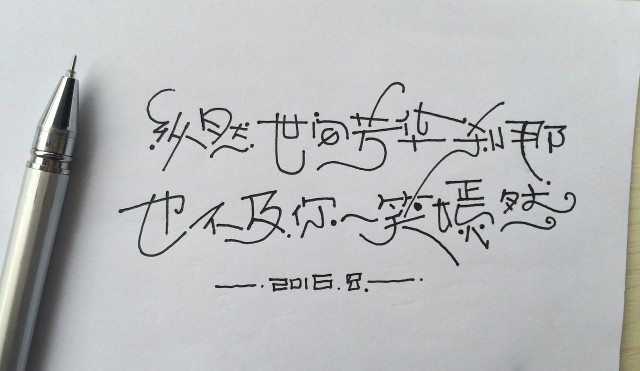 纵然世间芳华刹那
也不及你一笑嫣然
—·2016.8.—·